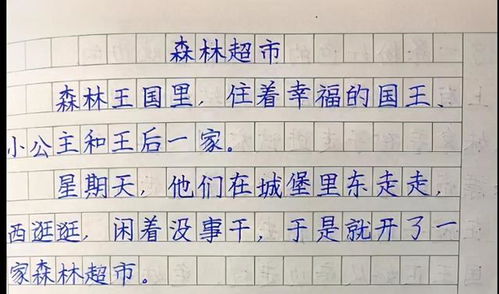 森林超市
森林王国里，住着幸福的国王、
小公主和王后一家。
星期天，他们在城堡里东走走，
西逛逛，闲着没事干，于是就开了一
家森林超市。